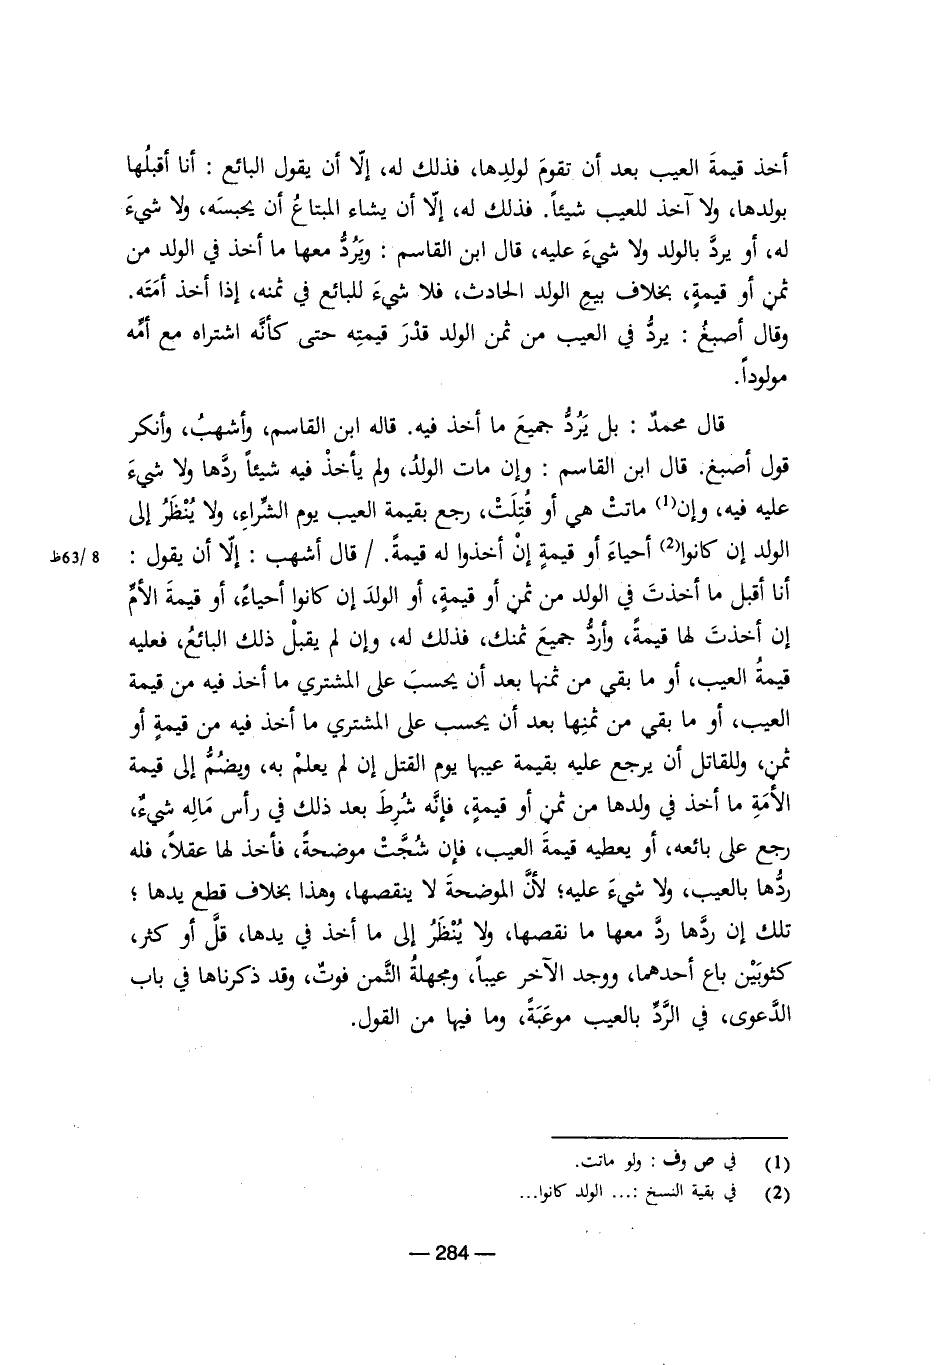 أخذ قيمةَ العيب بعد أن تقومَ لولدِها، فذلك له، إلّا أن يقول البائع : أنا أقبلُها
بولدها، ولا آخذ للعيب شيئاً. فذلك له، إلّا أن يشاء المبتاعُ أن يحبسَه، ولا شيءَ
له، أو يردَّ بالولد ولا شيءَ عليه، قال ابن القاسم : ويَرُدُّ معها ما أخذ في الولد من
ثمنٍ أو قيمةٍ، بخلاف بيعِ الولد الحادث، فلا شيءَ للبائع في ثمنه، إذا أخذ أمَتَه.
وقال أصبغُ : يردُّ في العيب من ثمن الولد قدْرَ قيمتِه حتى كأنَّه اشتراه مع أمِّه
مولوداً.
قال محمدٌ : بل يَرُدُّ جميعَ ما أخذ فيه. قاله ابن القاسم، وأشهبُ، وأنكر
قول أصبغ. قال ابن القاسم : وإن مات الولدُ، ولم يأخذْ فيه شيئاً ردَّها ولا شيءَ
عليه فيه، وإن(1) ماتتْ هي أو قُتِلَتْ، رجع بقيمة العيب يوم الشِّراءِ، ولا يُنْظَرُ إلى
الولد إن كانوا(2) أحياءً أو قيمةٍ إنْ أخذوا له قيمةً. / قال أشهب : إلّا أن يقول : 8 /63ظ
أنا أقبل ما أخذتَ في الولد من ثمنٍ أو قيمةٍ، أو الولدَ إن كانوا أحياءً، أو قيمةَ الأمِّ
إن أخذتَ لها قيمةً، وأردُّ جميعَ ثمنك، فذلك له، وإن لم يقبلْ ذلك البائعُ، فعليه
قيمةُ العيب، أو ما بقي من ثمنها بعد أن يحسبَ على المشتري ما أخذ فيه من قيمة
العيب، أو ما بقي من ثمنِها بعد أن يحسب على المشتري ما أخذ فيه من قيمةٍ أو
ثمنٍ، وللقاتل أن يرجع عليه بقيمة عيبها يوم القتل إن لم يعلمْ به، ويضُمُّ إلى قيمة
الأمَةِ ما أخذ في ولدها من ثمنٍ أو قيمةٍ، فإنَّه شُرِطَ بعد ذلك في رأس مَالِه شيءٌ،
رجع على بائعه، أو يعطيه قيمةَ العيب، فإن شُجَّتْ موضحةً، فأخذ لها عقلاً، فله
ردُّها بالعيب، ولا شيءَ عليه؛ لأنَّ الموضحةَ لا ينقصها، وهذا بخلاف قطع يدها ؛
تلك إن ردَّها ردَّ معها ما نقصها، ولا يُنْظَرُ إلى ما أخذ في يدها، قلَّ أو كثر،
كثوبَيْن باع أحدهما، ووجد الآخر عيباً، ومجهلةُ الثَّمن فوتٌ، وقد ذكرناها في باب
الدَّعوى، في الرَّدِّ بالعيب موعَبَةً، وما فيها من القول.
(1) في ص وف : ولو ماتت.
(2) في بقية النسخ :... الولد كانوا...
— 284 —